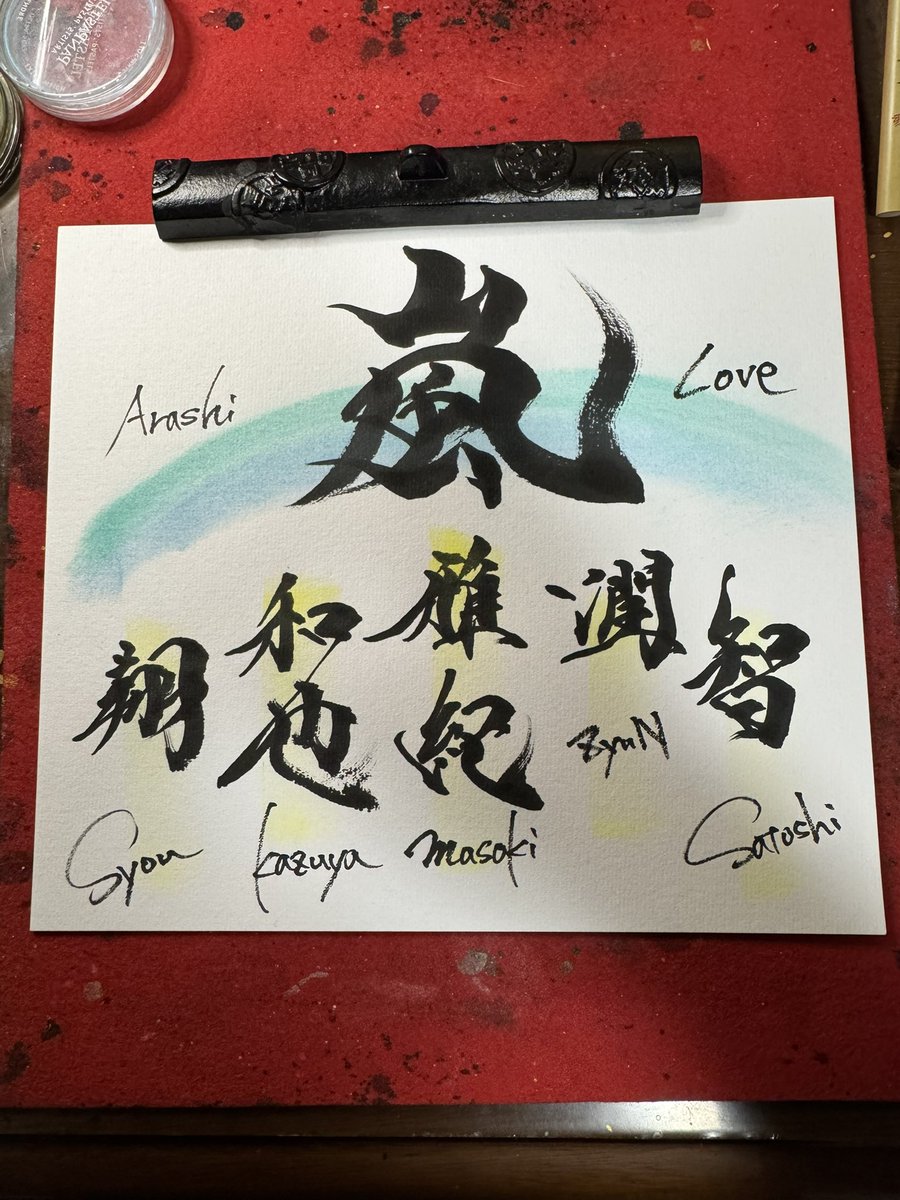 嵐
Arashi
Love
翔
和也
雅紀
潤
智
Syou
Kazuya
masaki
ZyuN
Satoshi